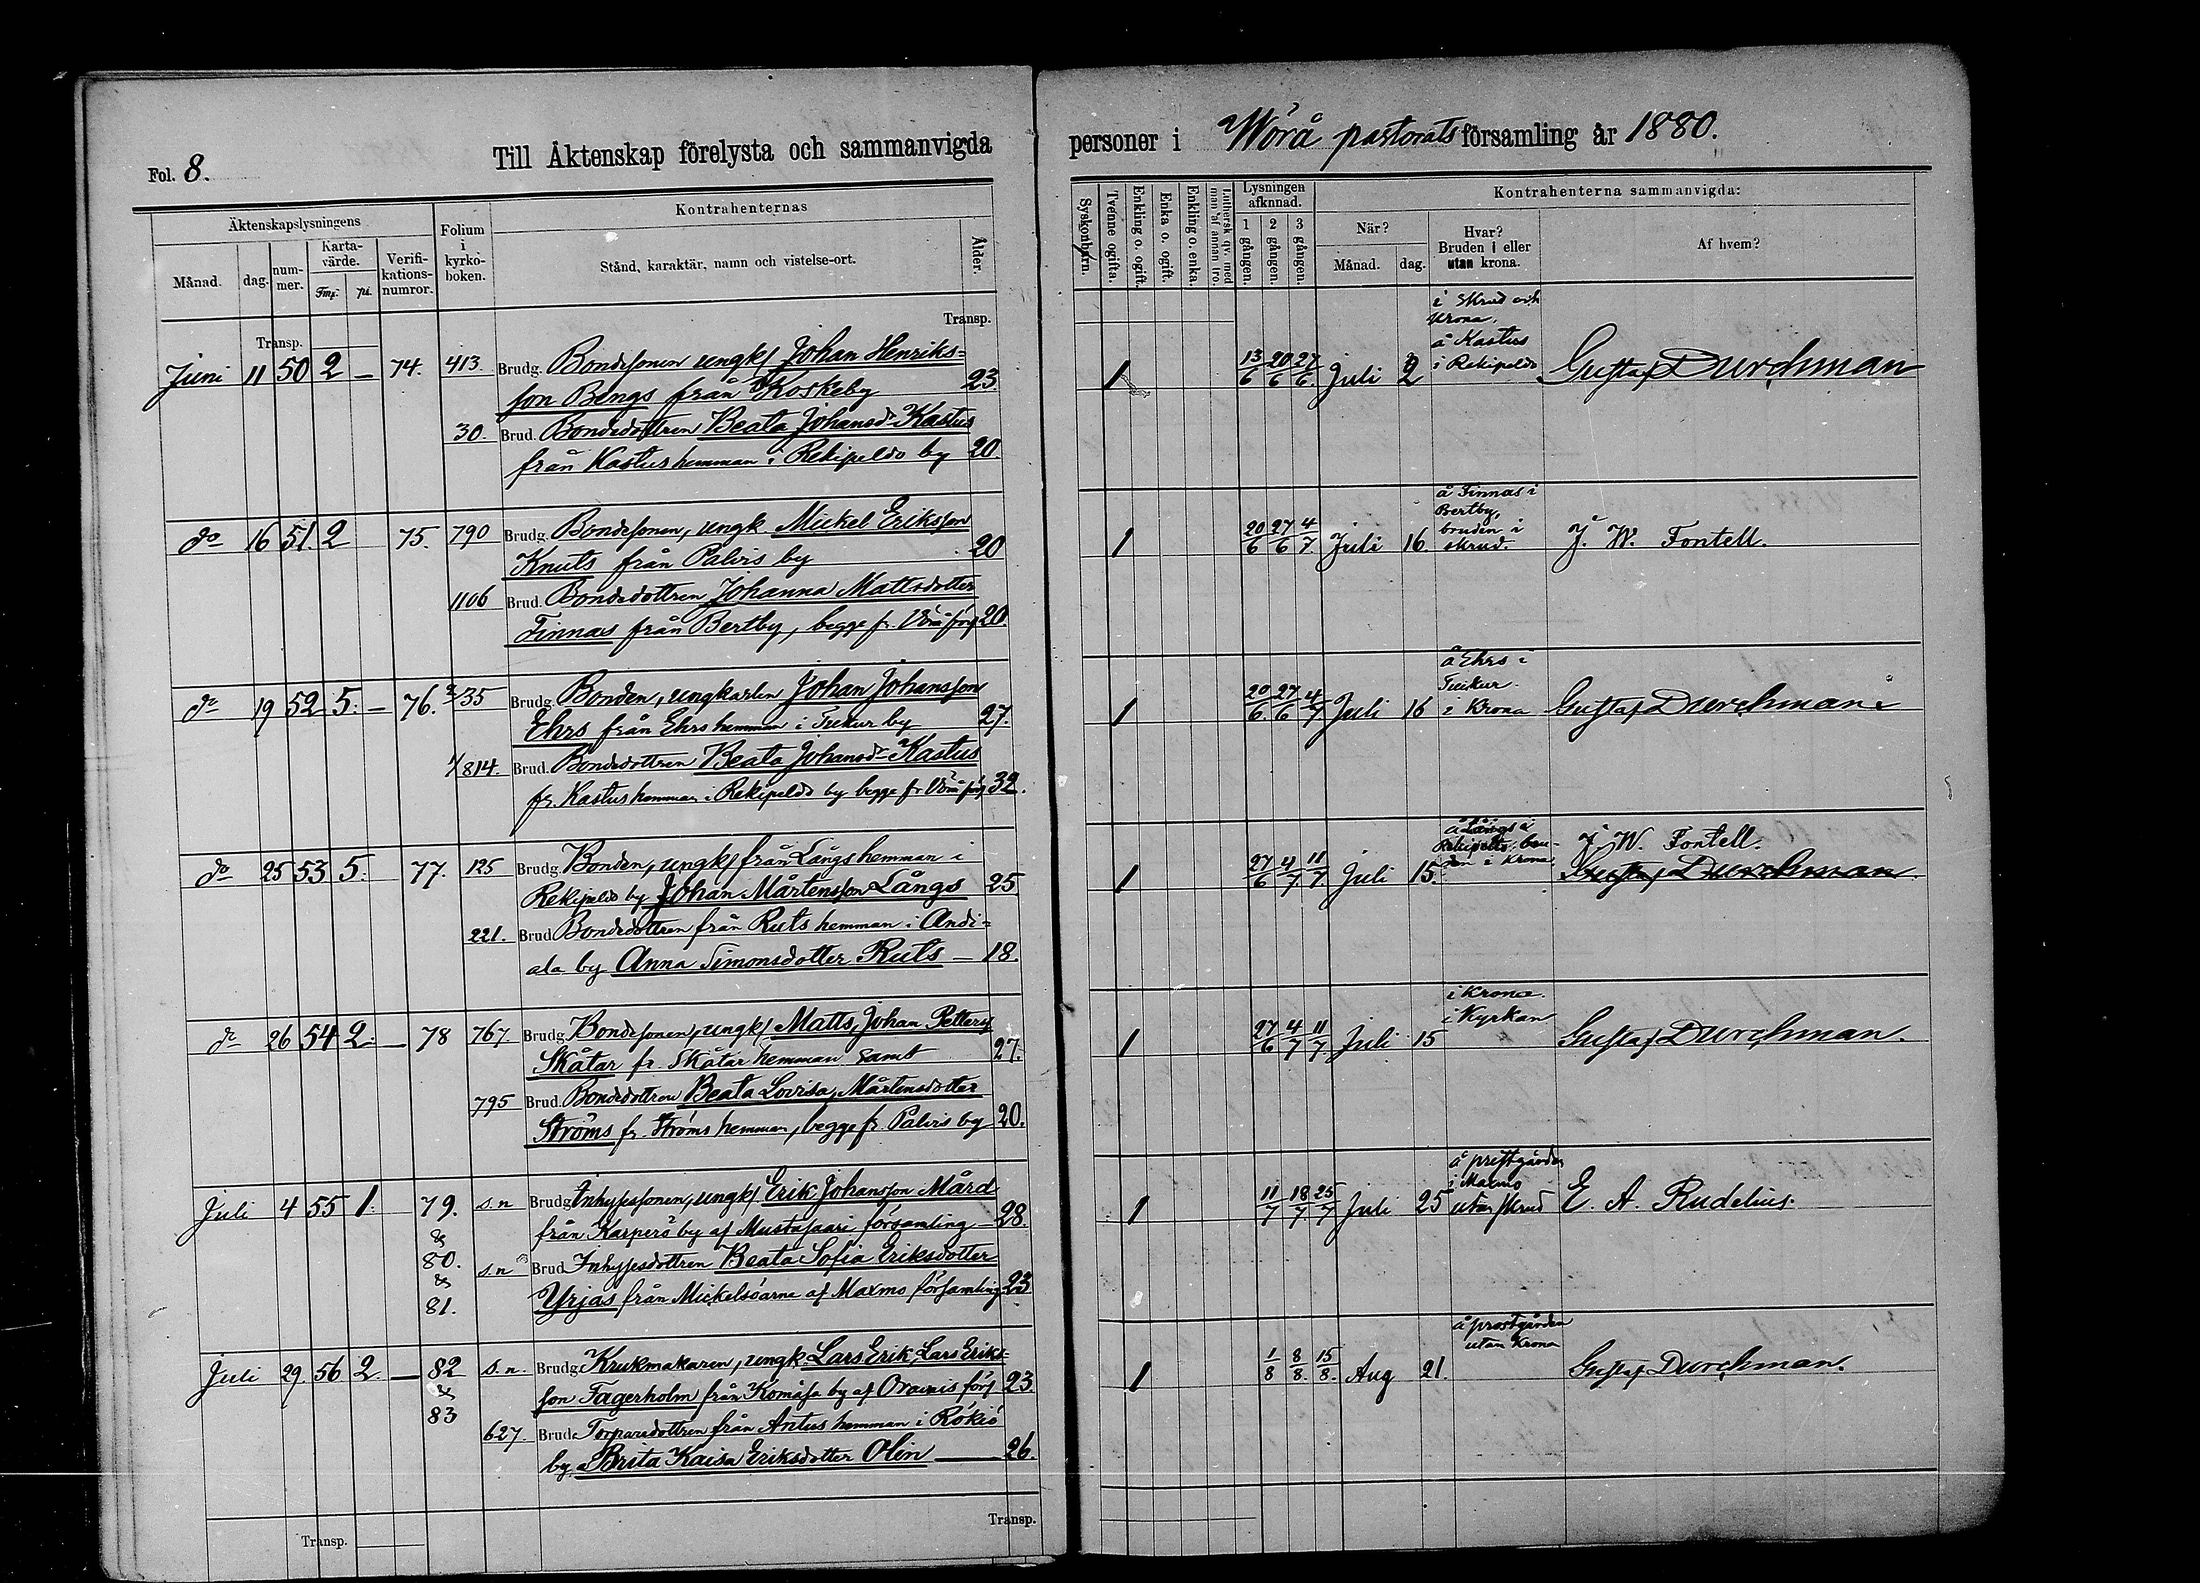 Fol. 8.
Till Äktenskap förelysta och sammanvigda
Äktenskapslysningens
Månad.
dag.
num-
mer.
Karta-
värde.
Fmk.
pi.
Verifi-
kations-
numror.
Folium
i
kyrko-
boken.
Kontrahenternas
Stånd, karaktär, namn och vistelse-ort.
Ålder.
Transp.
Transp.
Juni 11 50 2 — 74. 413. Brudg. Bondesonen ungk/ Johan Henriks=
son Bengs från Koskeby 23
30. Brud. Bondedottren Beata Johansdr Kastus
från Kastus hemman i Rekipeldo by 20.
do 16 51. 2 75. 790 Brudg. Bondesonen, ungk. Mickel Eriksson
Knuts från Palvis by 20
1106 Brud. Bondedottren Johanna Mattsdotter
Finnas från Bertby, begge fr. Vörå förs 20.
do 19 52 5. — 76. 35 Brudg. Bonden, ungkarlen Johan Johansson
Ehrs från Ehrs hemman i Tuckur by 27.
814. Brud. Bondedottren Beata Johansdr Kastus
fr. Kastus hemman i Rekipeldo by begge fr Vörå förs 32.
do 25 53 5. 77. 125 Brudg. Bonden, ungk/ från Långs hemman i
Rekipeldo by Johan Mårtensson Långs 25
221. Brud Bondedottren från Ruts hemman i Andi=
ala by Anna Simonsdotter Ruts — 18.
do 26 54 2. — 78 767. Brudg. Bondesonen, ungk/ Matts, Johan Petters
Skåtar fr. Skåtar hemman samt 27.
795 Brud. Bondedottren Beata Lovisa, Mårtensdotter
Ströms fr. Ströms hemman, begge fr. Palvis by 20.
Juli 4 55 1. 79. s.n Brudg. Inhysessonen, ungk/ Erik Johansson Mård
från Karperö by af Mustasaari församling 28.
&
80. s.n Brud. Inhysesdottren Beata Sofia Eriksdotter
&
81. Yrjas från Mickelsöarne af Maxmo församling 23
Juli 29 56 2. — 82 s.n. Brudg. Krukmakaren, ungk. Lars Erik, Lars Eriks=
&
83 son Fagerholm från Komåsa by af Oravais förs 23
627. Brud. Torparedottren från Antus hemman i Rökiö
by Brita Kaisa Eriksdotter Olin — 26.
Transp.
Transp.
personer i Wörå pastorats församling år 1880.
Syskonbarn.
Tvenne ogifta.
Enkling o. ogift.
Enka o. ogift.
Enkling o. enka.
Luthersk qv. med man af annan tro.
Lysningen
afknnad.
1 gången.
2 gången.
3 gången.
Kontrahenterna sammanvigda:
När?
Månad.
dag.
Hvar?
Bruden i eller
utan krona.
Af hvem?
i skrud och
krona.
å Kastus
i Rekipeldo
1 13/6 20/6 27/6. Juli 2 Gustaf Durchman
å Finnas i
Bertby,
bruden i
skrud.
1 20/6 27/6 4/7 Juli 16. J. W. Fontell.
å Ehrs i
Tuckur.
i Krona
1 20/6. 27/6 4/7 Juli 16 Gustaf Durchman
å Långs i
Rekipeldo, bru-
den i krona
J. W. Fontell.
1 27/6 4/7. 11/7 Juli 15. Gustaf Durchman.
i Krona.
i Kyrkan
1 27/6 4/7 11/7 Juli 15 Gustaf Durchman.
å prestgården
i Maxmo
utan skrud
1 11/7 18/7. 25/7 Juli 25 E. A. Rudelius.
å prostgården
utan Krona
1 1/8 8/8. 15/8. Aug 21. Gustaf Durchman.